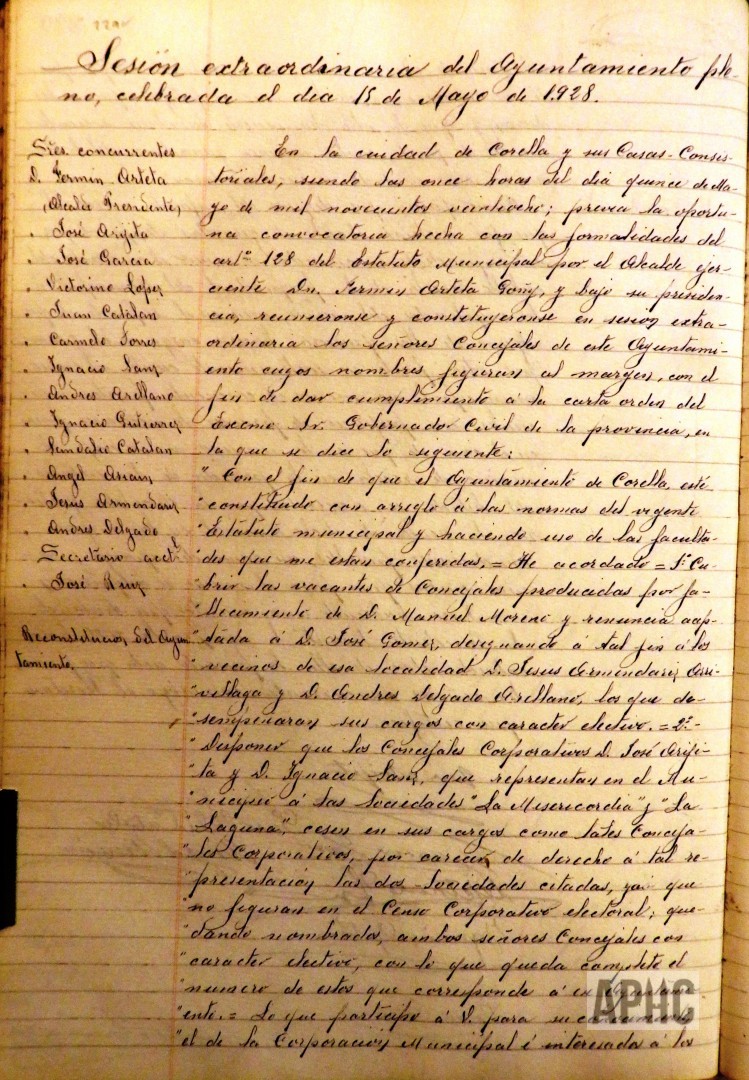 Sesión extraordinaria del Ayuntamiento ple-
no, celebrada el dia 15 de Mayo de 1928.
Sres. concurrentes
D. Fermin Arteta
(Alcalde Presidente)
" José Arigita
" José Garcia
" Victorino López
" Juan Catalan
" Carmelo Torres
" Ignacio Sanz
" Andres Arellano
" Ignacio Gutierrez
" Sandalio Catalan
" Angel Arnaiz
" Jesús Armendariz
" Andres Delgado y
Secretario acctl.
" José Ruiz
Reconstitucion del Ayun-
tamiento.
En la ciudad de Corella y sus Casas-Consis-
toriales, siendo las once horas del dia quince de Ma-
yo de mil novecientos veintiocho; previa la oportu-
na convocatoria hecha con las formalidades del
artº 128 del Estatuto Municipal por el Alcalde ejer-
ciente Dn. Fermin Arteta Goñi, y bajo su presiden-
cia, reunieronse y constituyeronse en sesión extra-
ordinaria los señores Concejales de este Ayuntami-
ento cuyos nombres figuran al margen, con el
fin de dar cumplimiento á la carta orden del
Excmo Sr. Gobernador Civil de la provincia, en
la que se dice lo siguiente:
" Con el fin de que el Ayuntamiento de Corella esté
" constituido con arreglo á las normas del vigente
" Estatuto municipal y haciendo uso de las faculta-
" des que me estan conferidas, = He acordado = 1º Cu-
" brir las vacantes de Concejales producidas por fa-
" llecimiento de D. Manuel Moreno y renuncia acep-
" tada á D. José Gomez, designando á tal fin á los
" vecinos de esa localidad D. Jesus Armendariz Arri-
" villaga y D. Andres Delgado Arellano, los que de-
" sempeñaran sus cargos con caracter electivo. = 2º-
" Disponer que los Concejales Corporativos D. José Arigi-
" ta y D. Ignacio Sanz, que representan en el Mu-
" nicipio á las Sociedades "La Misericordia" y "La
" Laguna", cesen en sus cargos como tales Conceja-
" les Corporativos, por carecer de derecho á tal re-
" presentación las dos Sociedades citadas, ya que
" no figuran en el Censo Corporativo electoral; que-
" dando nombrados, ambos señores Concejales con
" caracter electivo, con lo que queda completo el
" numero de estos que corresponde á ese Ayuntami-
" ento. = Lo que participo á V. para su conocimiento
" el de la Corporación Municipal é interesados á los
APHC